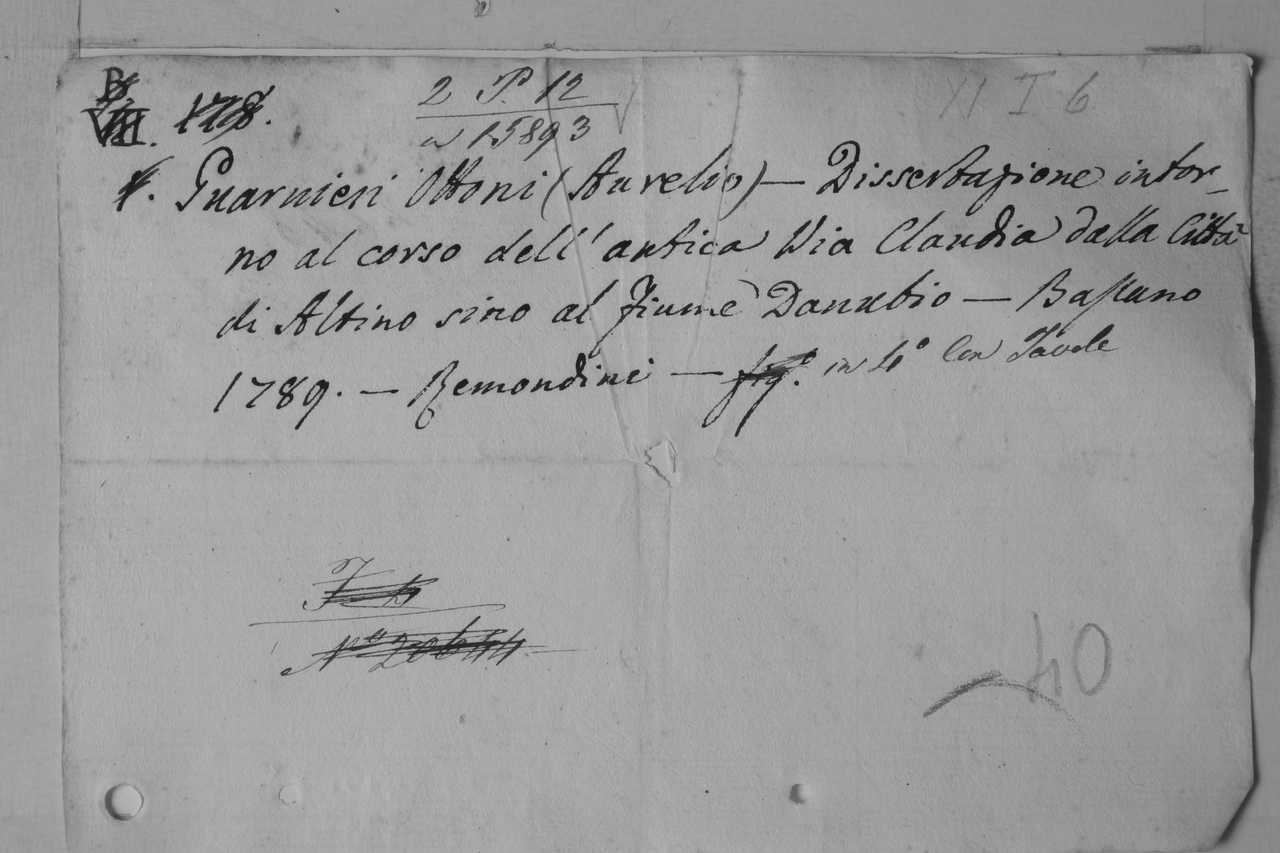 2 P. 12
n 15893
XI I 6
Guarnieri Ottoni (Aurelio) — Dissertazione intor-
no al corso dell' antica Via Claudia dalla Città
di Altino sino al Fiume Danubio — Bassano
1789. — Remondini — fig.° in 4° Con Tavole
N° 20644
40